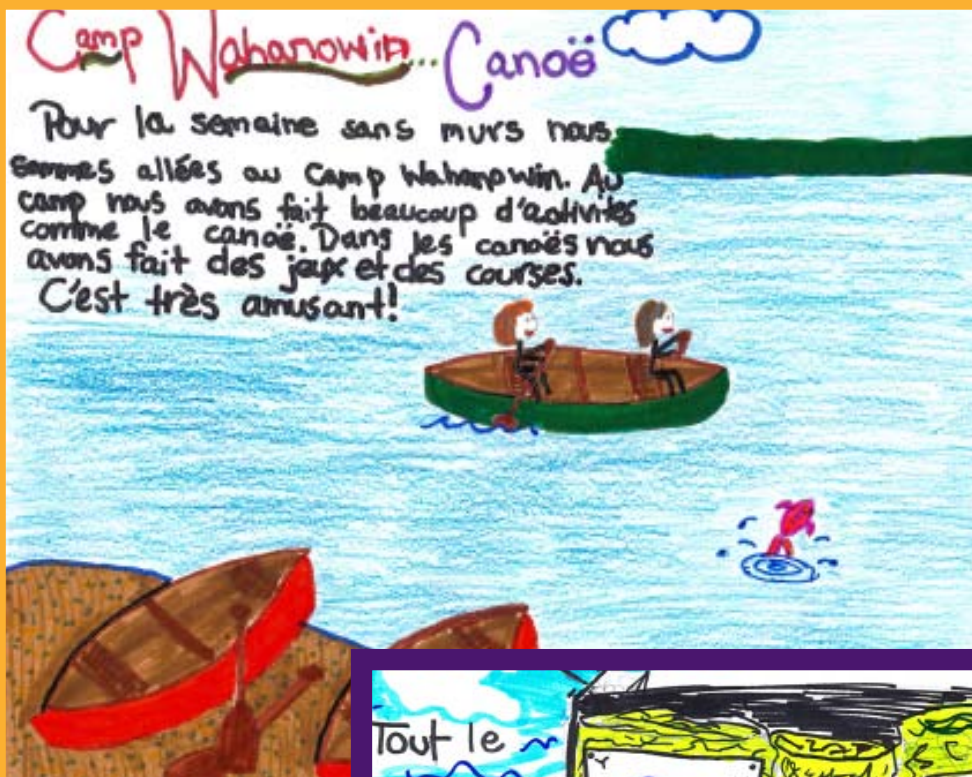 Camp Wahanowin... Canoë
Pour la semaine sans murs nous
sommes allées au Camp Wahanowin. Au
camp nous avons fait beaucoup d'activites
comme le canoë. Dans les canoës nous
avons fait des jeux et des courses.
C'est très amusant!
Tout le